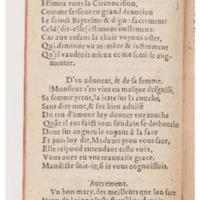 Estimez vous la Circoncision,
Comme faisons en grand deuotion
Le sainct Baptesme & d'gn' sacrement?
Celà (dit-elle) estimons nullement:
Car aux enfans la chair voyons oster,
Qui diminue vn membre & instrument
Qu'il vaudroit mieux ce me semble augmenter.
D'vn aduocat, & de sa femme.
Monsieur s'en vint en masque desguisé,
Sa femme prent, la iette sur la couche,
Sans dire mot, & fut bien aduisé
Du ieu d'amour luy donner vne touche
Quãt il ent faict tout soudain se desbouche
Dont fut cogneu le voyant à la face
Et puis luy dit, Madame prou vous face,
Elle respond entendant ceste voix,
Vous auez eu vne mauuaise grace.
Maudicte sois-ie, si ie vous cognoissois.
Autrement.
Vn bon mary, des meilleurs que lon face